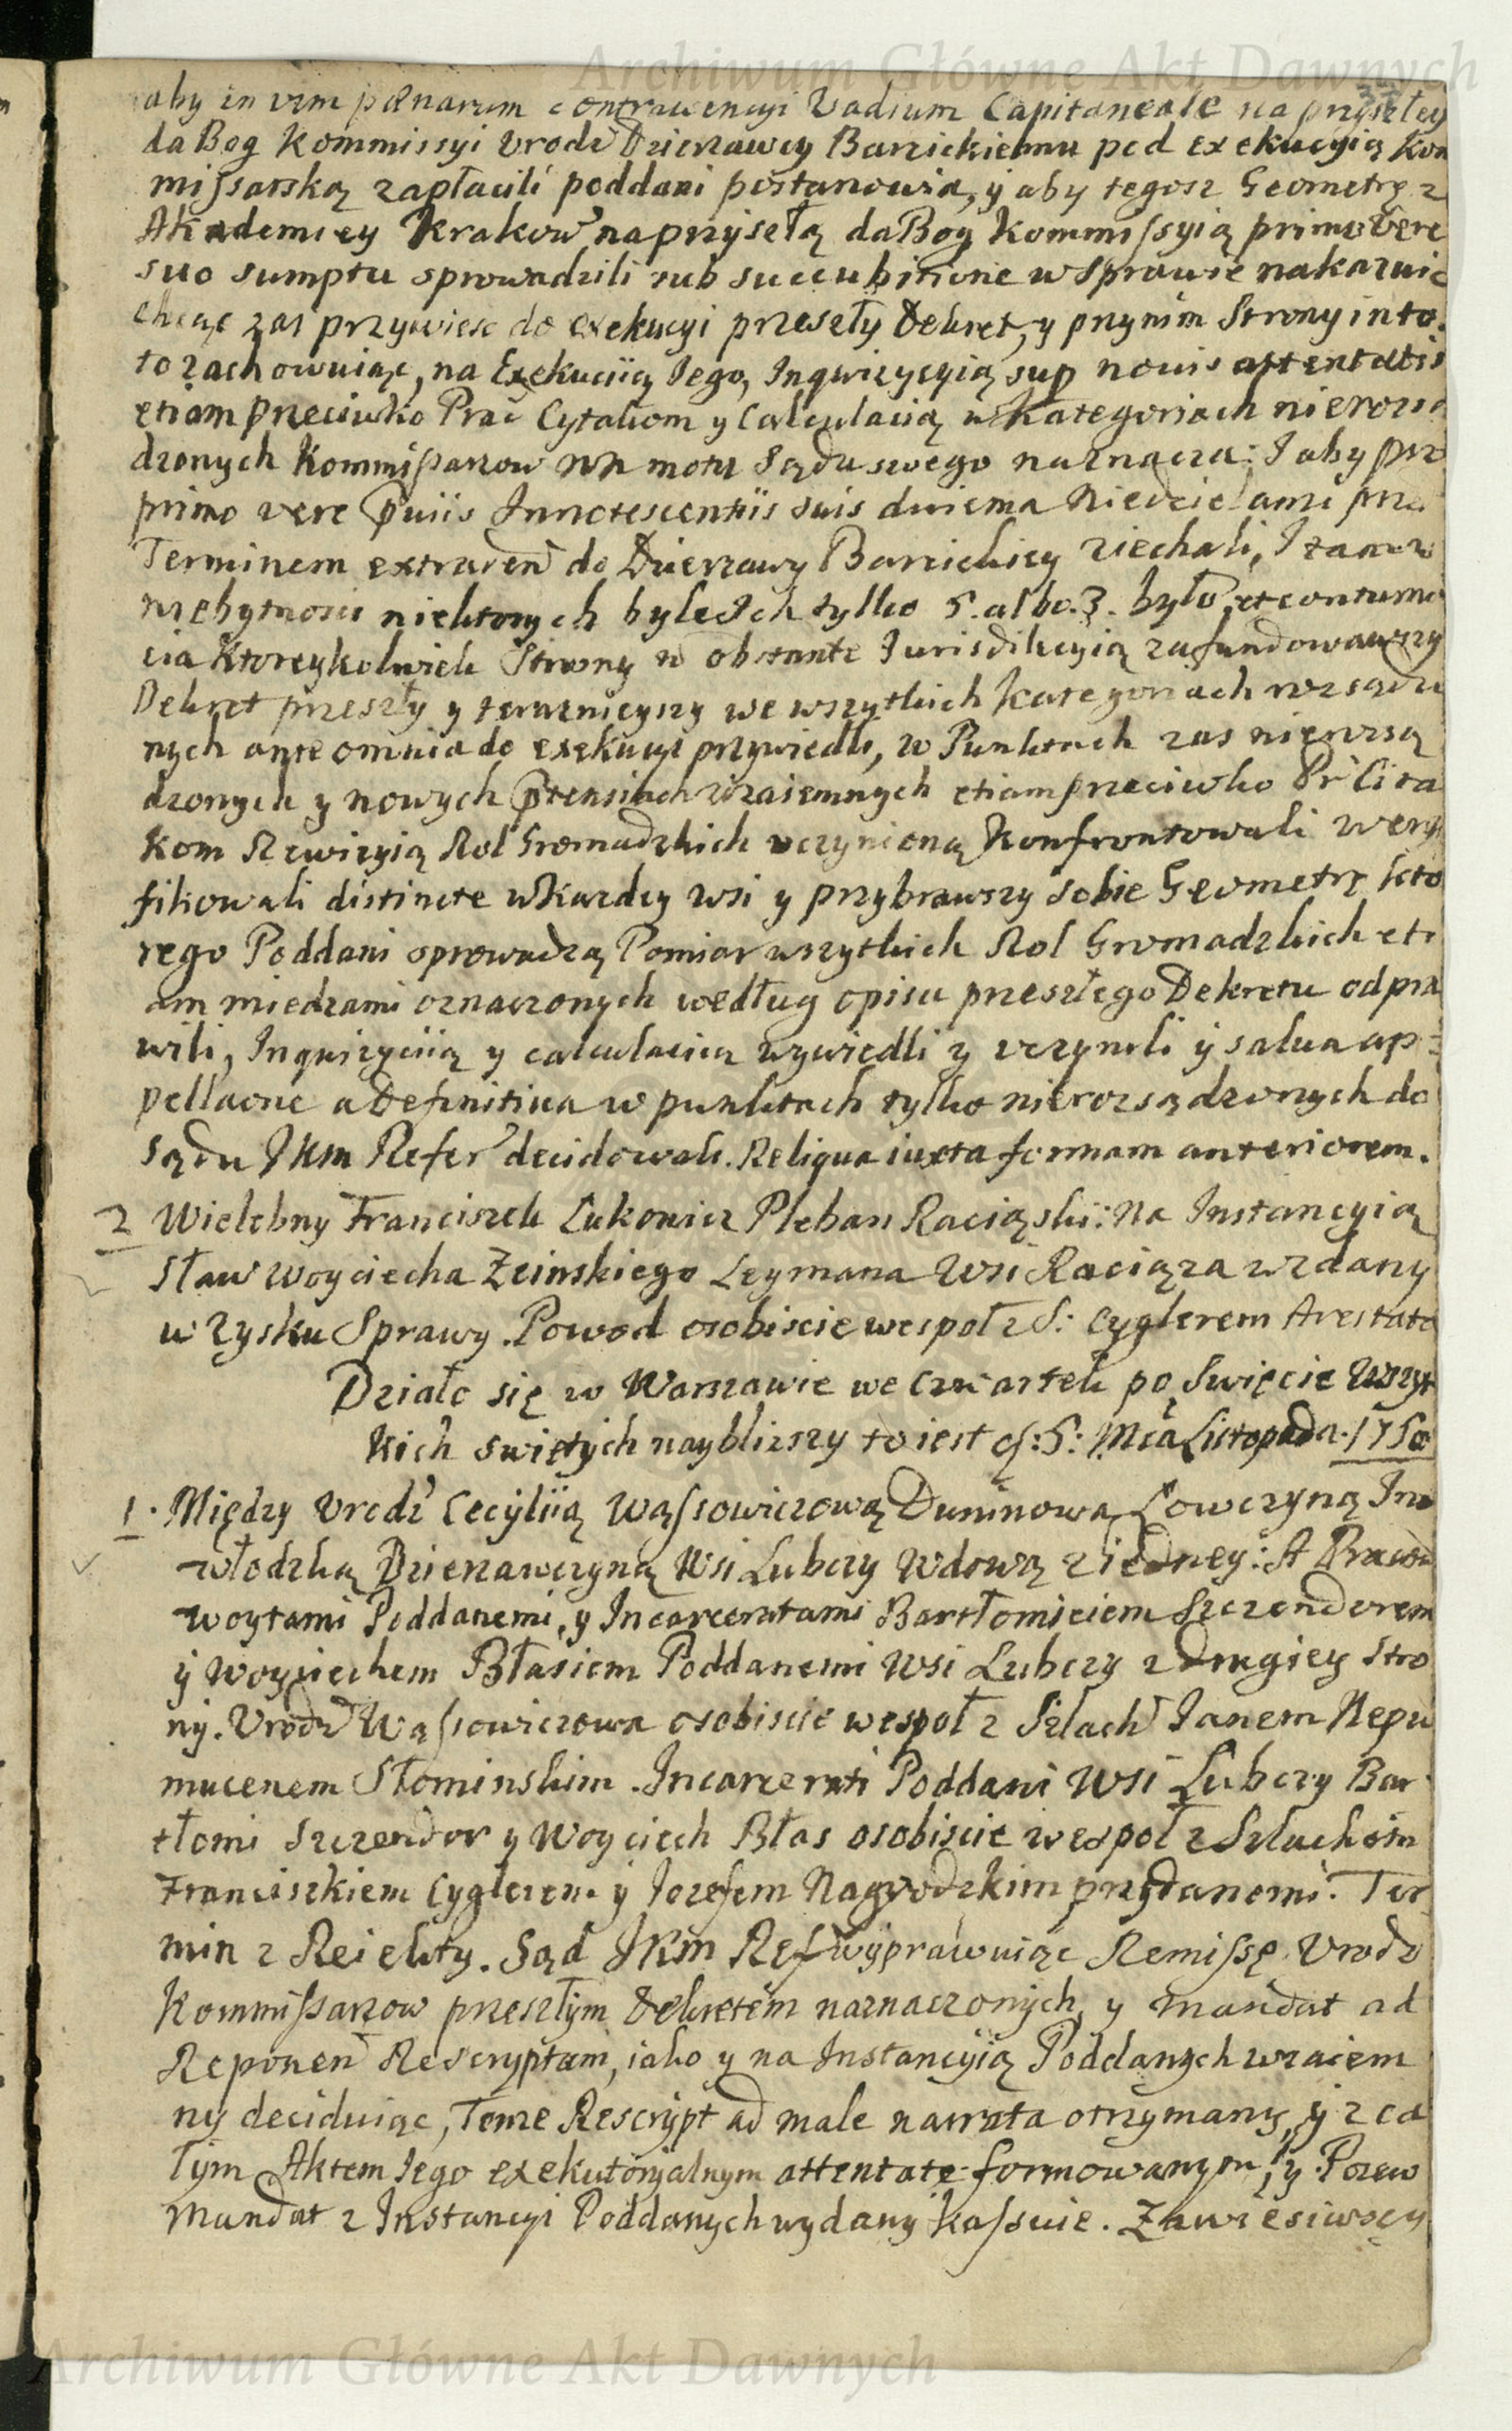 Archiwum Główne Akt Dawnych
aby in vim pœnarum contravencyi Vadium Capitaneale na przyszłey
da Bog Kommissyi Urodz Dzierzawcy Barcickiemu pod exekucyią Kom
missarską zapłacili poddani postanowia, y aby tegosz Geometrę z
Akademiey Krakow na przyszłą da Bog Kommissyią primo vere
suo sumptu sprowadzili sub succubitione w Sprawie nakazuie
chcąc zas przywiesc do exekucyi przeszły Dekret, y przy nim Strony in to
to zachowuiąc, na Exekuciią Iego, Inqwizycyią sup novis attentatis
etiam przeciwko Prac Cytatiom y Calculacią w Kategoriach nierozsą
dzonych Kommissarzow ex motu Sądu swego naznacza: I aby pro
primo vere Pviis Innotescentiis suis dwiema Niedzielami przed
Terminem extraden do Dzierzawy Barcickiey ziechali, I zara w
niebytnosci niektorych byle Ich tylko 5. albo. 3. było, et contuma
cia Ktoreykolwiek Strony n obstante Iurisdikcyią zafundowawszy
Dekret przeszły y terazniejszy we wszytkich Kategoriach rozsądzo
nych ante omnia do exekucyi przywiedli, w Punktach zas nierozsą
dzonych y nowych Ptensiach wzaiemnych etiam przeciwko Pr Cita
kom Rewizyią Rol Gromadzkich uczynioną Konfrontowali wery
fikowali distincte w Kazdey wsi y przybrawszy sobie Geometrę kto
rego Poddani sprowadzą Pomiar wszytkich Rol Gromadzkich eti
am miedzami oznaczonych według opisu przeszłego Dekretu odpra
wili, Inquizyciią y calculacią wywiedli y uczynili y salva ap=
pellaone a Definitiva w punktach tylko nierozsądzonych do
Sądu JKM Refer decidowali. Reliqua iuxta formam anteriorem.
2 Wielebny Franciszek Lukowicz Pleban Raciąski: Na Instancyią
Sław Woyciecha Zeinskiego Leymana Wsi Raciąza wzdany
w Zysku Sprawy. Powod osobiscie wespoł z S: Cyglerem Arestata
Działo się w Warszawie we Czwartek po Swięcie Wszyt
kich swiętych naybliszy to iest d: 5: Mca Listopada. 1750
1. Między Urodz Cecyliią Wąssowiczową Duninową Łowczyną Ino
włodzką Dzierzawczyną Wsi Lubczy Wdową z iedney: A Pracow
woytami Poddanemi, y Incarceratami Bartłomieiem Szczendorem
y Woyciechem Błasiem Poddanemi Wsi Lubczy z drugiey Stro
ny. Urodz Wąssowiczowa osobiscie wespoł z Szlach Ianem Nepu
mucenem Słominskim. Incarcerati Poddani Wsi Lubczy Bar
tłomi Szczendor y Woyciech Błas osobiscie wespoł z Szlachem
Franciszkiem Cyglerem y Iozefem Nagrodzkim przydanemi. Ter
min z Reiekty. Sąd JKM Ref wyprawuiąc Remissę Urodz
Kommissarzow przeszłym Dekretem naznaczonych, y Mandat ad
Reponen Rescryptum, iako y na Instancyią Poddanych wzaiem
ny deciduiąc, Tenze Rescrypt ad male narrata otrzymany, y z ca
łym Aktem Iego exekutoryalnym attentate formowanym, y Pozew
Mandat z Instancyi Poddanych wydany kassuie. Zawiesiwszy
Archiwum Główne Akt Dawnych